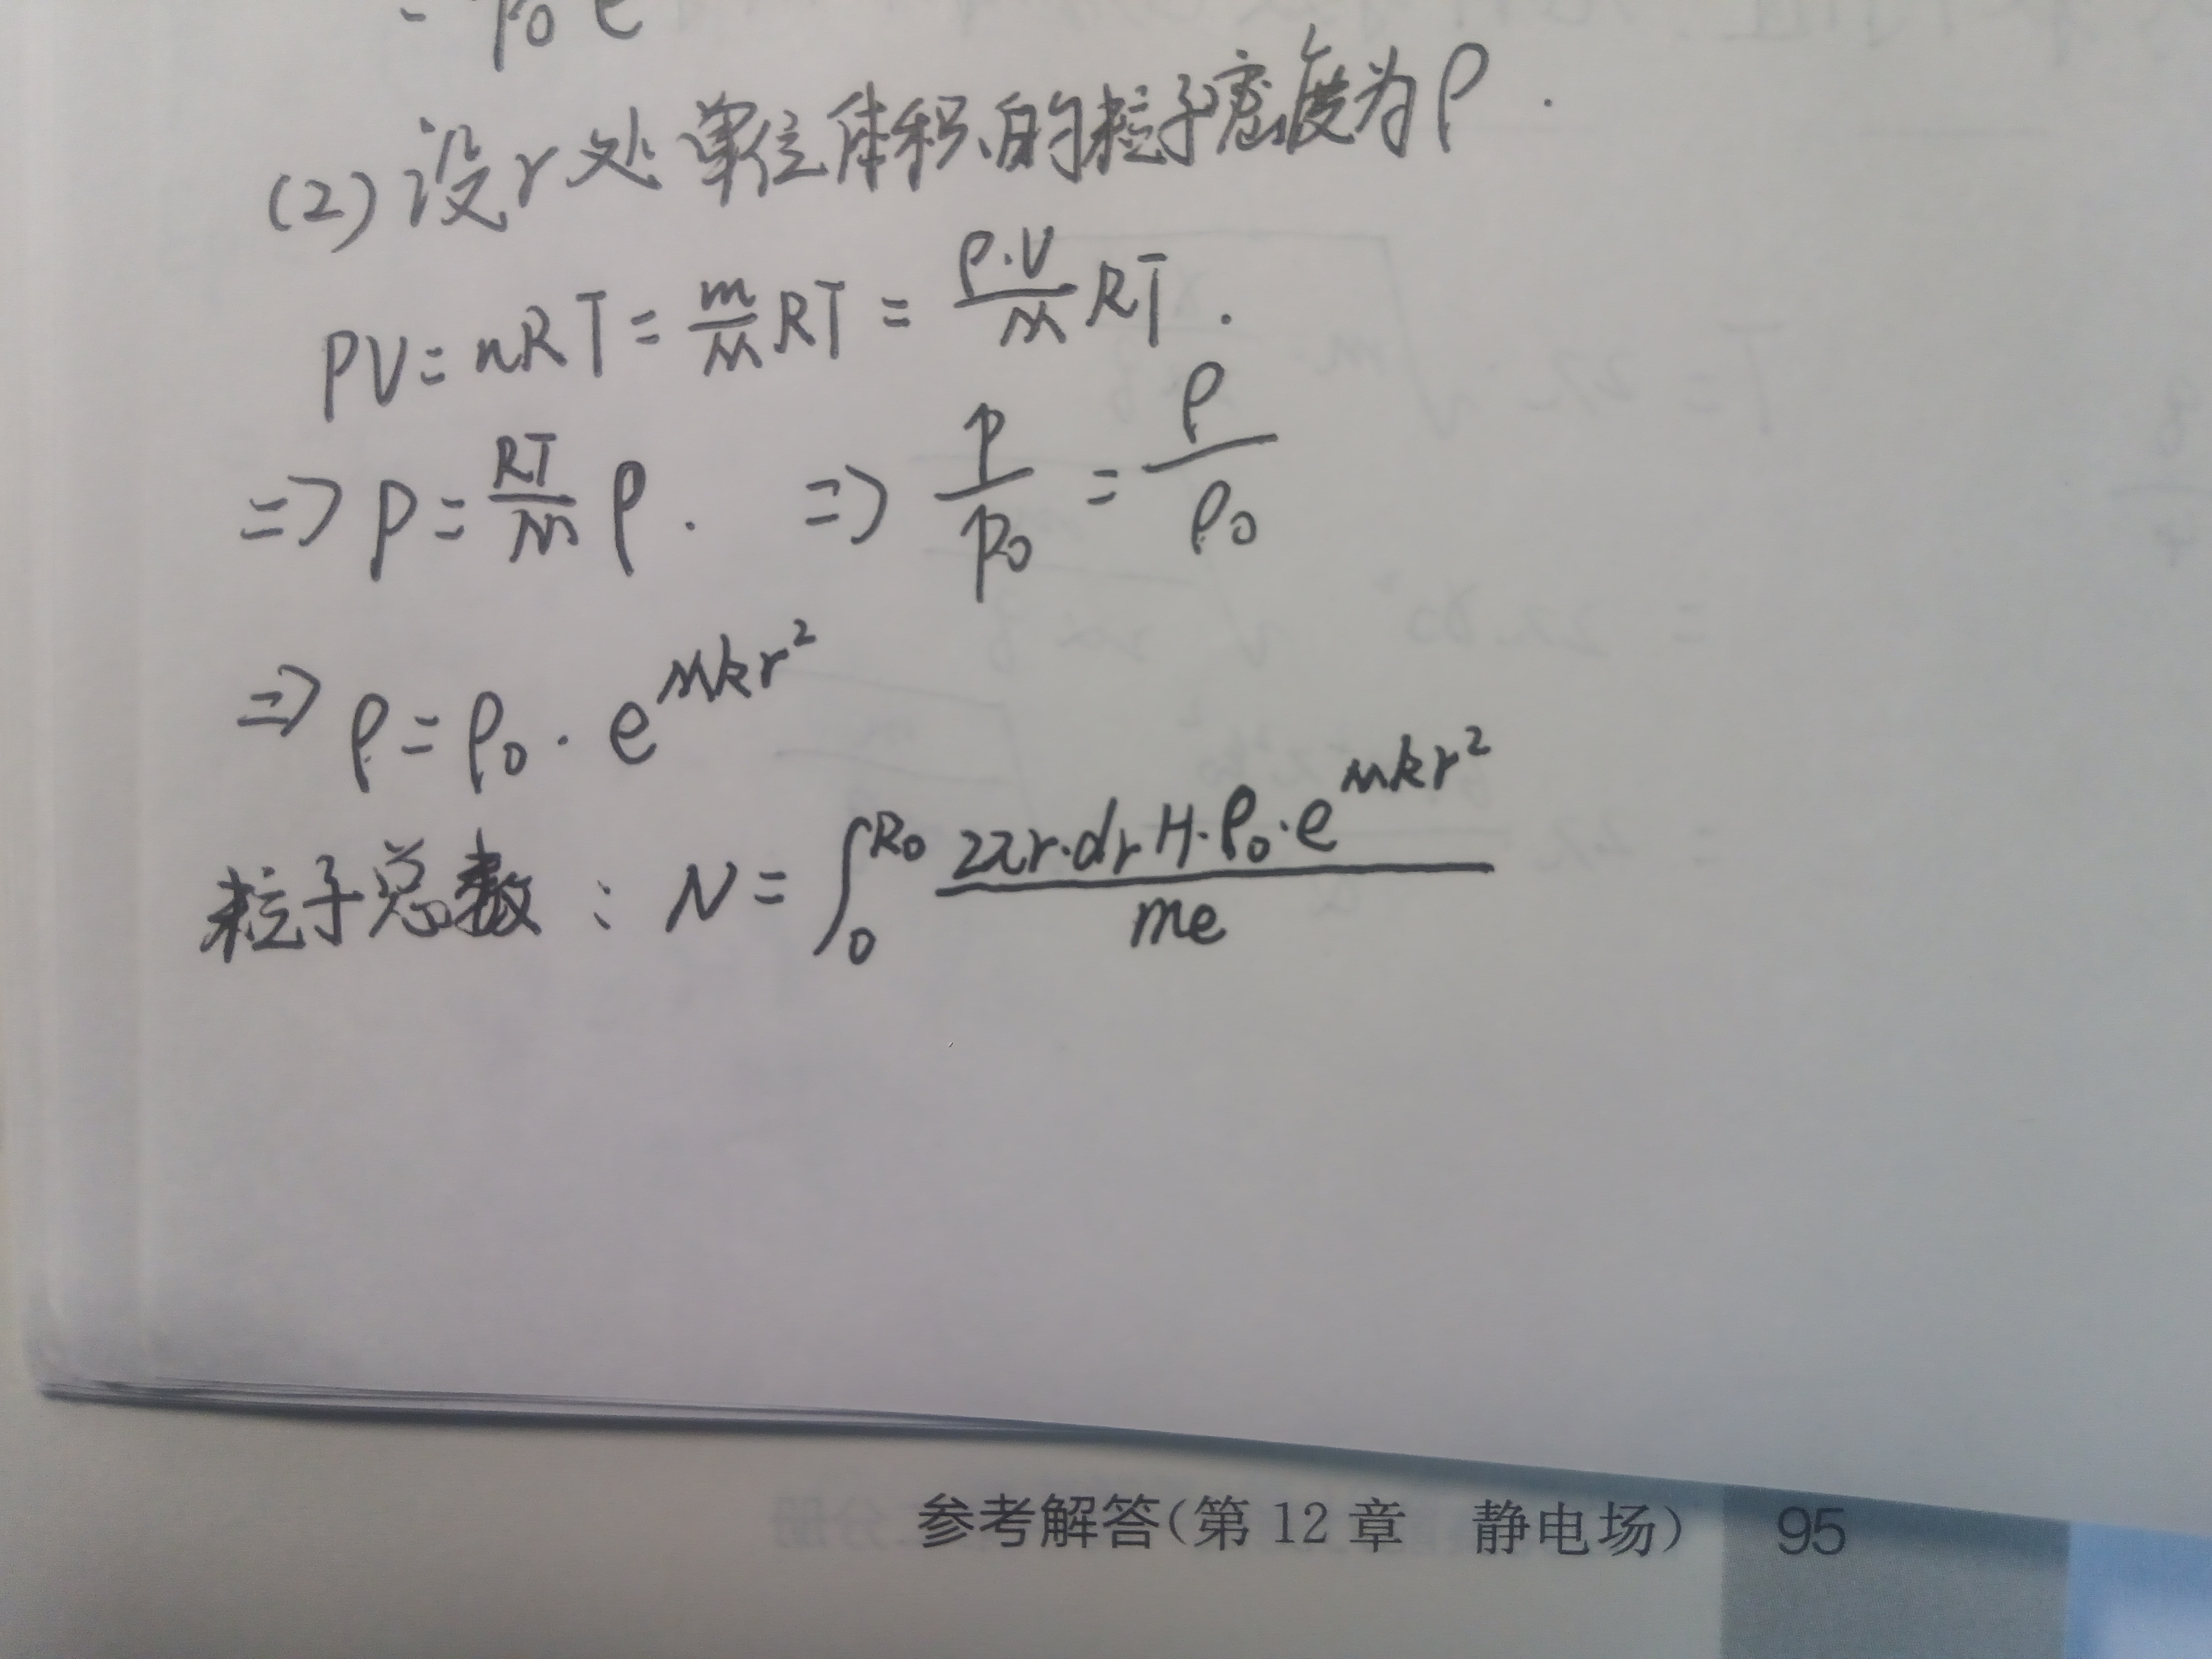 = p₀ e
(2) 设 r 处 单位体积的粒子密度为 ρ .
PV = nRT = m/M RT = ρ·V/M RT .
=> p = RT/M ρ . => p/p₀ = ρ/ρ₀
=> ρ = ρ₀ · e^(Mkr²)
粒子总数 : N = ∫₀^R₀ 2πr·dr H·ρ₀·e^(mkr²) / me
参考解答(第 12 章 静电场) 95